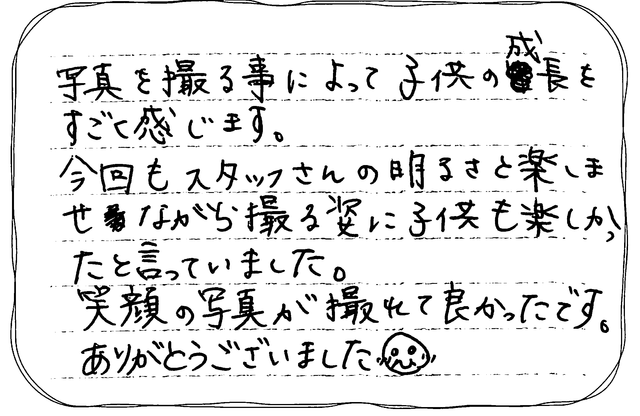 写真を撮る事によって子供の成長を
すごく感じます。
今回もスタッフさんの明るさと楽しま
せながら撮る姿に子供も楽しかっ
たと言っていました。
笑顔の写真が撮れて良かったです。
ありがとうございました